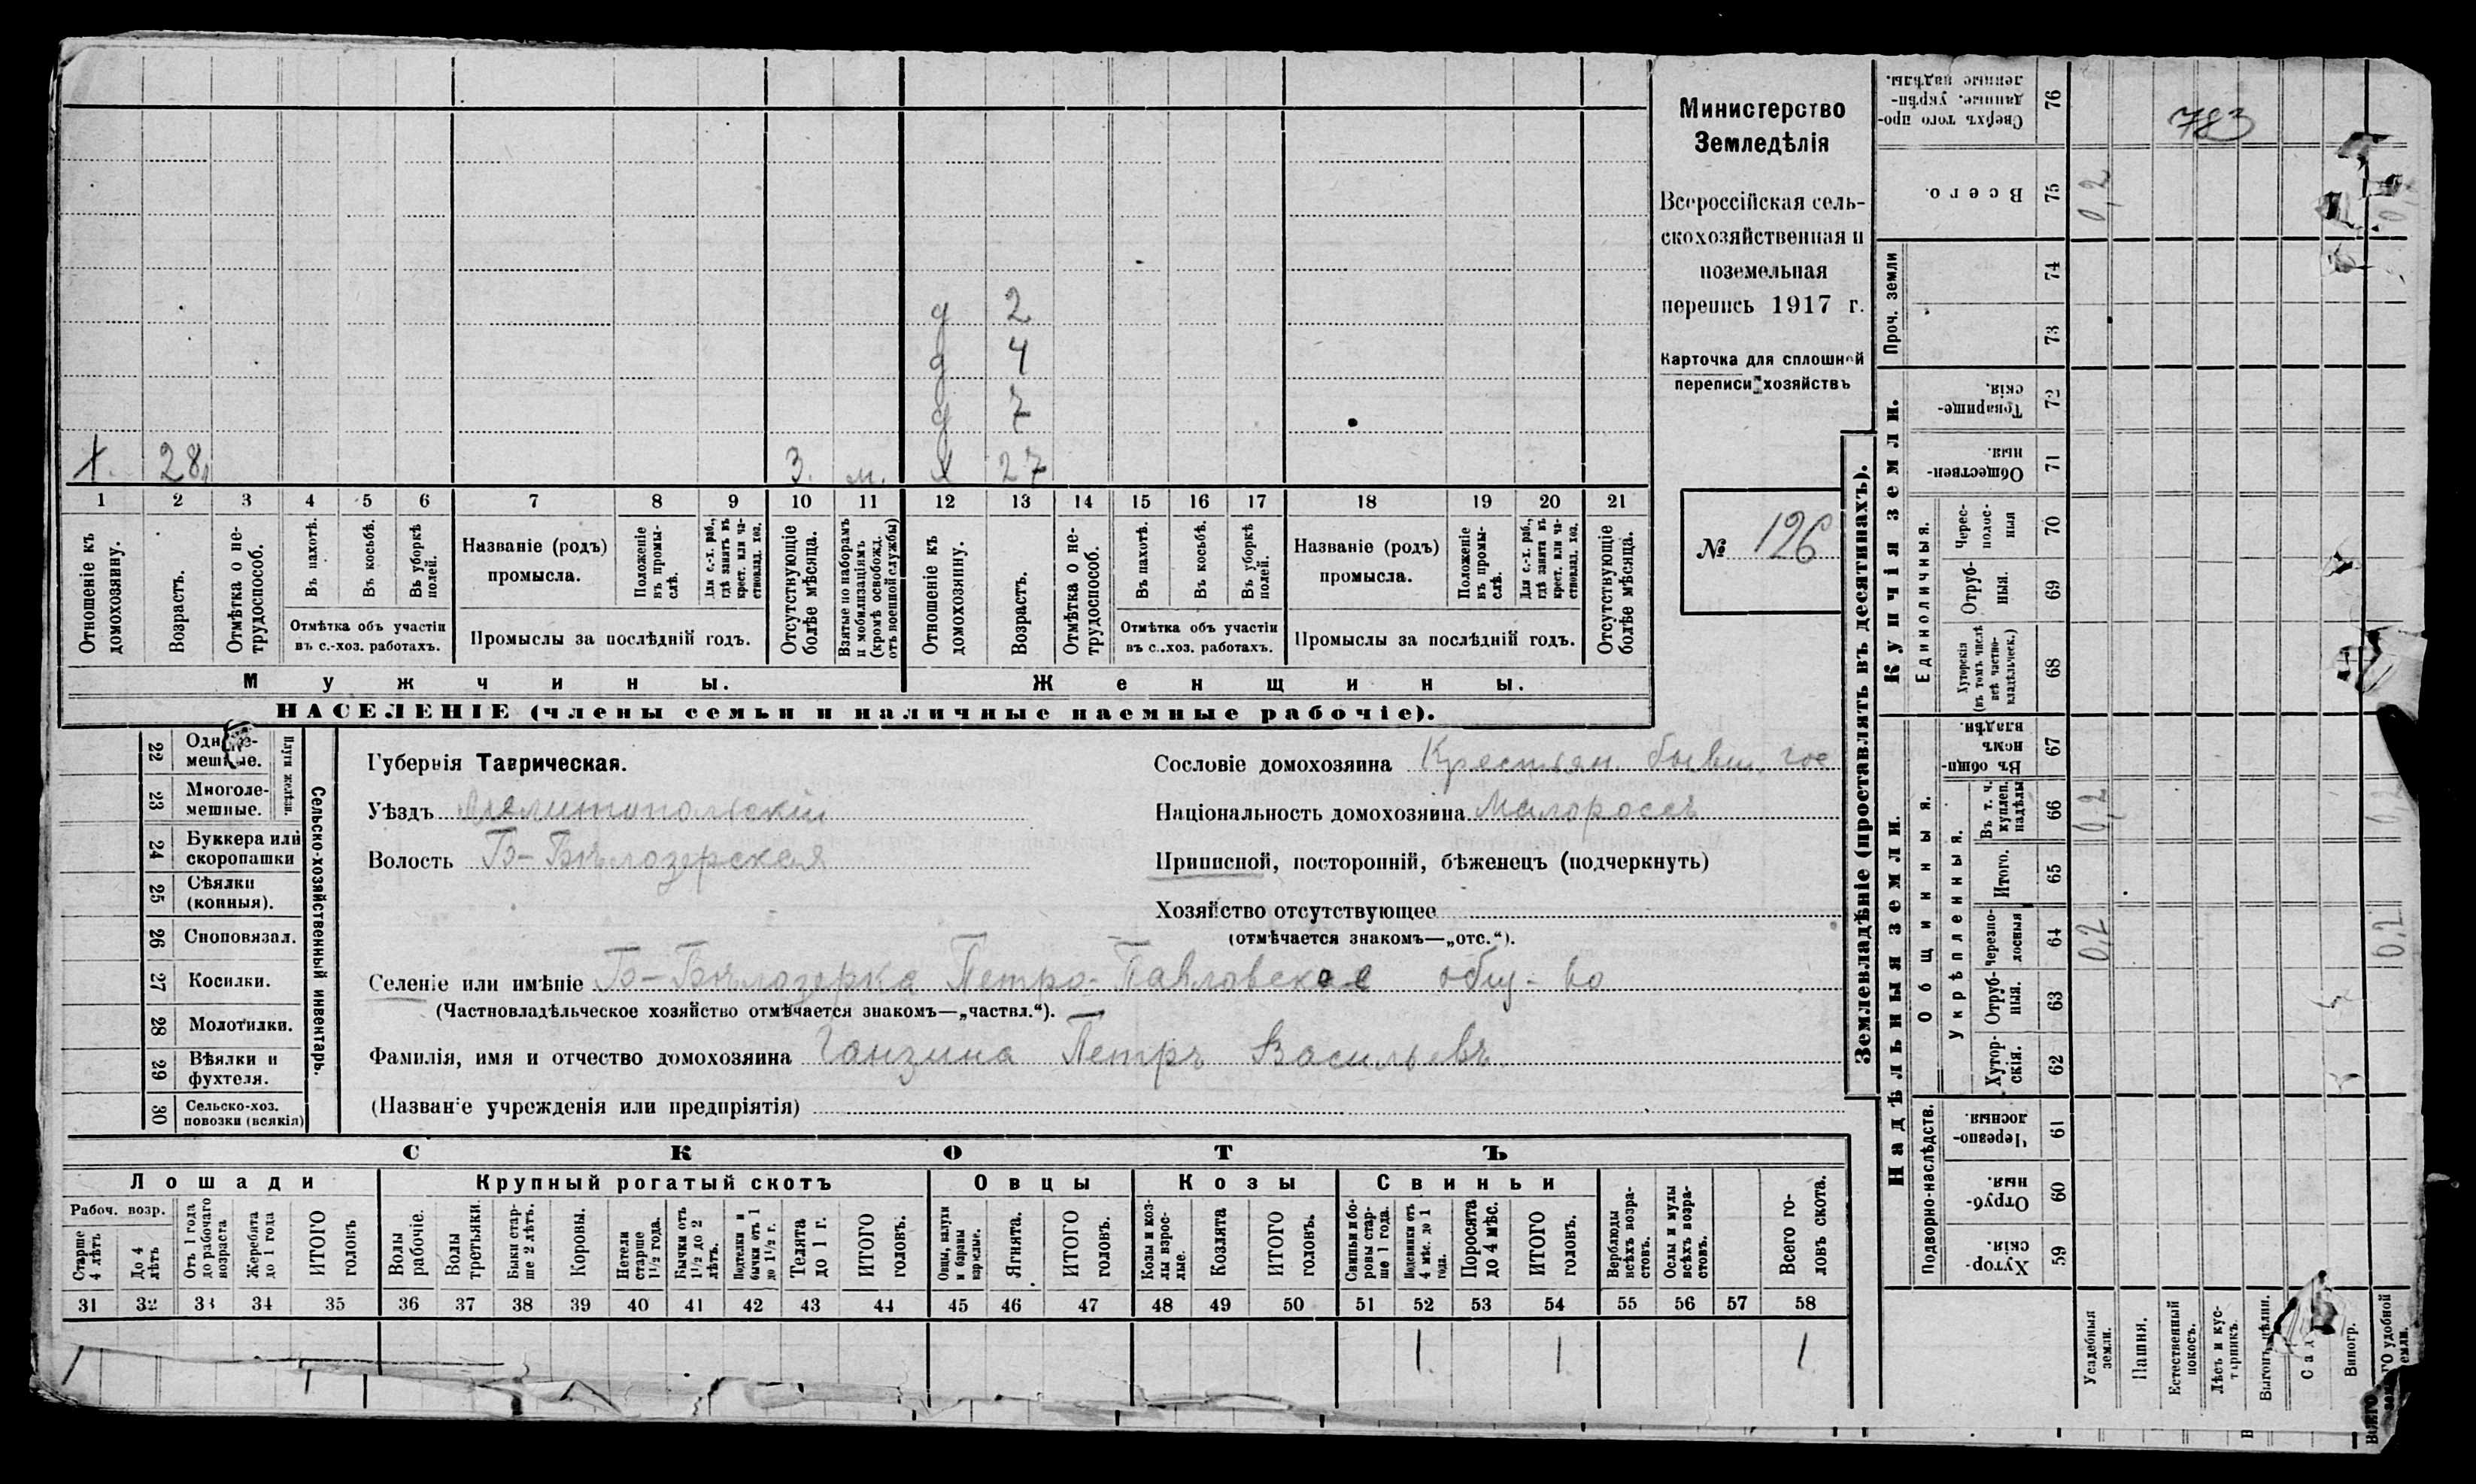 Министерство
Земледѣлія
Всероссійская сель-
скохозяйственная и
поземельная
перепись 1917 г.
Карточка для сплошной
переписи хозяйствъ
№ 126
783
д 2
д 4
д 7
х. 28 3. м. х 27
1 2 3 4 5 6 7 8 9 10 11 12 13 14 15 16 17 18 19 20 21
Отношеніе къ домохозяину.
Возрастъ.
Отмѣтка о не-трудоспособ.
Въ пахотѣ.
Въ косьбѣ.
Въ уборкѣ полей.
Отмѣтка объ участіи
въ с.-хоз. работахъ.
Названіе (родъ)
промысла.
Положеніе въ промы-слѣ.
Для с.-х. раб., гдѣ занятъ въ крест. или ча-стновлад. хоз.
Промыслы за послѣдній годъ.
Отсутствующіе болѣе мѣсяца.
Взятые по наборамъ и мобилизаціямъ (кромѣ освобожд. отъ военной службы)
Отношеніе къ домохозяину.
Возрастъ.
Отмѣтка о не-трудоспособ.
Въ пахотѣ.
Въ косьбѣ.
Въ уборкѣ полей.
Отмѣтка объ участіи
въ с.-хоз. работахъ.
Названіе (родъ)
промысла.
Положеніе въ промы-слѣ.
Для с.-х. раб., гдѣ занята въ крест. или ча-стновлад. хоз.
Промыслы за послѣдній годъ.
Отсутствующіе болѣе мѣсяца.
Мужчины.
Женщины.
НАСЕЛЕНІЕ (члены семьи и наличные наемные рабочіе).
Сельско-хозяйственный инвентарь.
Плуги желѣзн.
22 мешные.
23 Многоле-мешные.
24 Буккера или скоропашки
25 Сѣялки (конныя).
26 Сноповязал.
27 Косилки.
28 Молотилки.
29 Вѣялки и фухтеля.
30 Сельско-хоз. повозки (всякія)
Губернія Таврическая.
Уѣздъ Мелитопольскій
Волость Б-Бѣлозерская
Сословіе домохозяина Крестьян. бывш. гос
Національность домохозяина Малороссъ
Приписной, посторонній, бѣженецъ (подчеркнуть)
Хозяйство отсутствующее
(отмѣчается знакомъ—„отс.“).
Селеніе или имѣніе Б-Бѣлозерка Петро-Павловское общ-во
(Частновладѣльческое хозяйство отмѣчается знакомъ—„частвл.“).
Фамилія, имя и отчество домохозяина Ганзина Петръ Васильевъ
(Названіе учрежденія или предпріятія)
СКОТЪ
Лошади
Крупный рогатый скотъ
Овцы
Козы
Свиньи
Рабоч. возр.
Старше 4 лѣтъ
До 4 лѣтъ
Отъ 1 года до рабочаго возраста
Жеребята до 1 года
ИТОГО головъ
Волы рабочіе.
Волы третьяки.
Быки стар-ше 2 лѣтъ.
Коровы.
Нетели старше 1½ года.
Бычки отъ 1½ до 2 лѣтъ.
Подтелки и бычки отъ 1 до 1½ г.
Телята до 1 г.
ИТОГО головъ.
Овцы, валухи и бараны взрослые.
Ягнята.
ИТОГО головъ.
Козы и коз-лы взрос-лые.
Козлята
ИТОГО головъ.
Свиньи и бо-ровы стар-ше 1 года.
Подсвинки отъ 4 мѣс. до 1 года.
Поросята до 4 мѣс.
ИТОГО головъ.
Верблюды всѣхъ возра-стовъ.
Ослы и мулы всѣхъ возра-стовъ.
Всего го-ловъ скота.
31 32 33 34 35 36 37 38 39 40 41 42 43 44 45 46 47 48 49 50 51 52 53 54 55 56 57 58
1 1 1
Землевладѣніе (проставлять въ десятинахъ).
Надѣльныя земли.
Купчія земли.
Проч. земли
Подворно-наслѣдств.
Общинныя.
Укрѣпленныя.
Единоличныя.
Сверхъ того про-данные, укрѣп-ленные надѣлы. 76
Всего. 75 0,2
74
73
Товарище-скія. 72
Обществен-ныя. 71
Черес-полос-ныя 70
Отруб-ныя. 69
Хуторскія (въ томъ числѣ всѣ частно-владѣльческ.) 68
Въ общин-номъ владѣн. 67
Въ т. ч. куплен. надѣлы 66 0,2
Итого. 65
Черезпо-лосныя 64 0,2 0,2
Отруб-ныя. 63
Хутор-скія. 62
Черезпо-лосныя. 61
Отруб-ныя. 60
Хутор-скія. 59
Усадебныя земли.
Пашня.
Естественный покосъ.
Лѣсъ и кус-тарникъ.
Виногр.
ВСЕГО удобной земли.